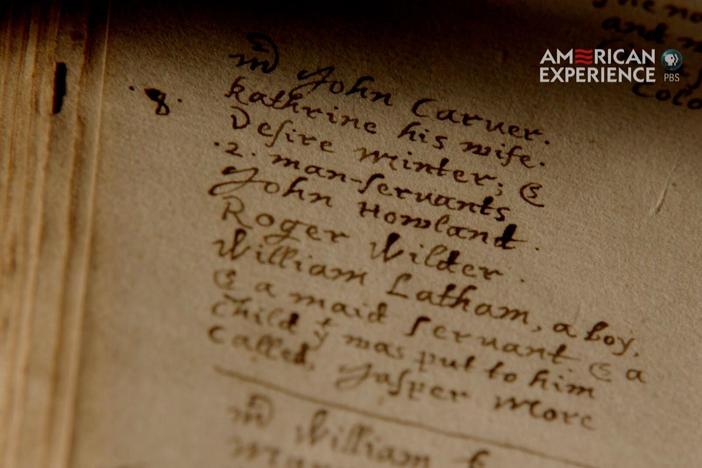 AMERICAN
EXPERIENCE PBS
mr John Carver.
.8. kathrine his wife.
Desire Minter; &
.2. man-servants
John Howland.
Roger Wilder.
William Latham, a boy.
& a maid servant. & a
child yt was put to him
called, Jasper More
mr William